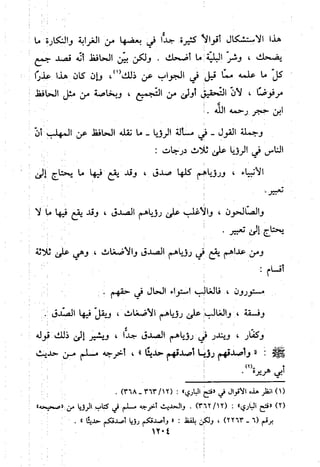 هذا الاستشكال أقوالاً كثيرة جداً في بعضها من الغرابة والنكارة ما
يضحك ، وشرّ البليّة ما أضحك . ولكن بيّن الحافظ أنّه قصد جمع
كلّ ما علمه ممّا قيل في الجواب عن ذلك(١)، وإن كان هذا عذراً
مرفوضاً ، لأنّ التّحقيق أولى من التّجميع ، وبخاصة من مثل الحافظ
ابن حجر رحمه الله .
وجملة القول - في مسألة الرؤيا - ما نقله الحافظ عن المهلب أنّ
الناس في الرؤيا على ثلاث درجات :
الأنبياء ، ورؤياهم كلها صدق ، وقد يقع فيها ما يحتاج إلى
تعبير .
والصّالحون ، والأغلب على رؤياهم الصدق ، وقد يقع فيها ما لا
يحتاج إلى تعبير .
ومن عداهم يقع في رؤياهم الصدق والأضغاث ، وهي على ثلاثة
أقسام :
مستورون ، فالغالب استواء الحال في حقهم .
وفسقة ، والغالب على رؤياهم الأضغاث ، ويقلّ فيها الصدق .
وكفّار ، ويندر في رؤياهم الصدق جداً ، ويشير إلى ذلك قوله
ﷺ : « وأصدقهم رؤيا أصدقهم حديثاً » ، أخرجه مسلم من حديث
أبي هريرة(٢).
(١) انظر هذه الأقوال في «فتح الباري» : (١٢/ ٣٦٣ - ٣٦٨) .
(٢) «فتح الباري» : (١٢/ ٣٦٢) . والحديث أخرجه مسلم في كتاب الرؤيا من «صحيحه»
برقم (٦ - ٢٢٦٣) ، ولكن بلفظ : « وأصدقكم رؤيا أصدقكم حديثاً » .
١٢٠٤